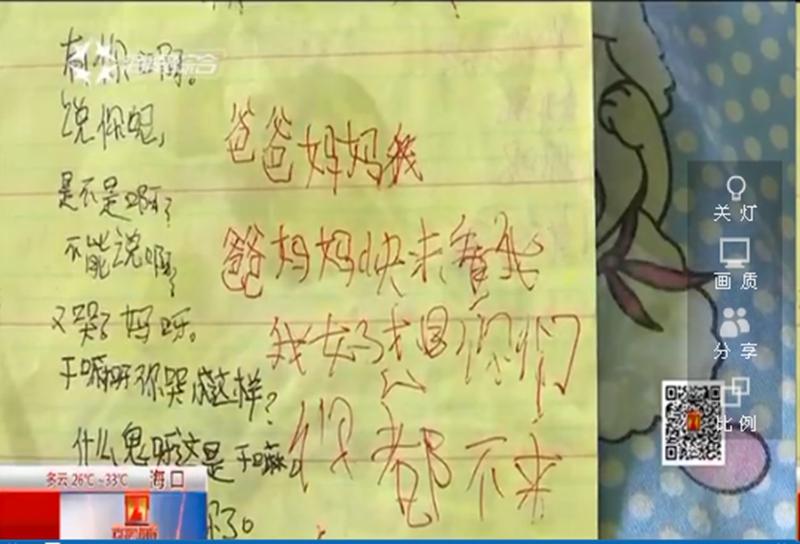 说你呢,
是不是啊?
不能说啊?
又哭了妈呀。
干嘛呀你哭成这样?
什么鬼呀这是干嘛
了。
爸爸妈妈我
爸爸妈妈快来看我
我好想你们
你都不来
关灯
画质
分享
比例
多云 26℃~33℃ 海口